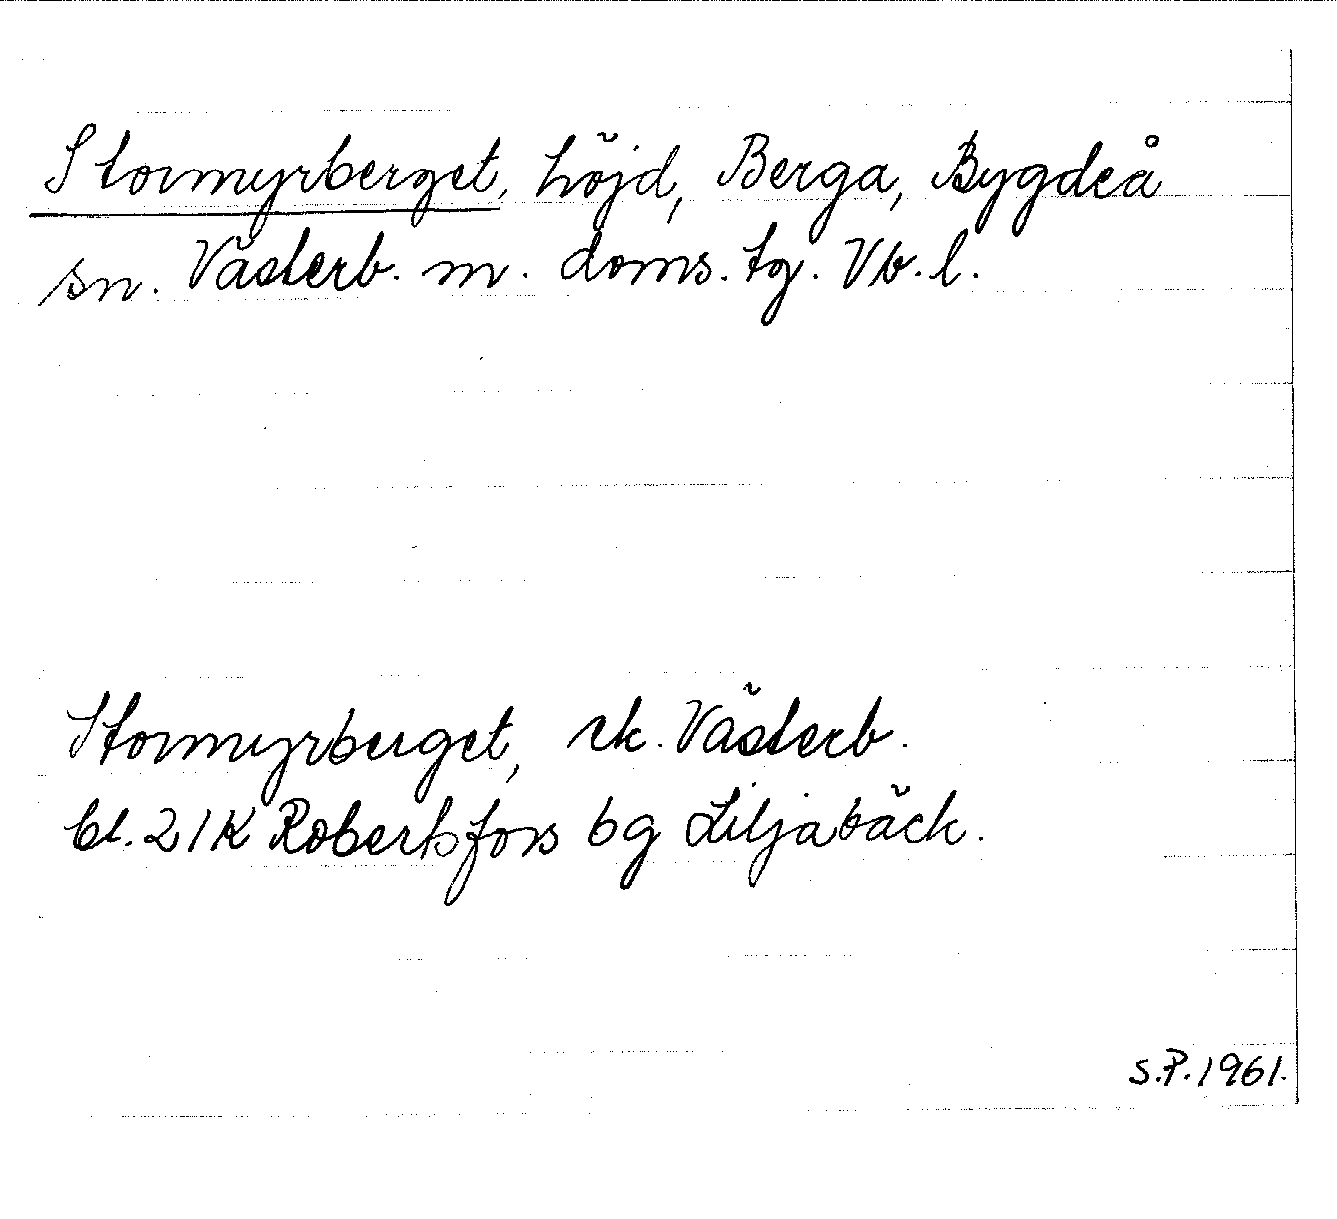 Stormyrberget, höjd, Berga, Bygdeå
sn. Västerb. m. doms. tg. Vb. l.
Stormyrberget, rk. Västerb.
bl. 21K Robertsfors bg Liljabäck.
S.P. 1961.